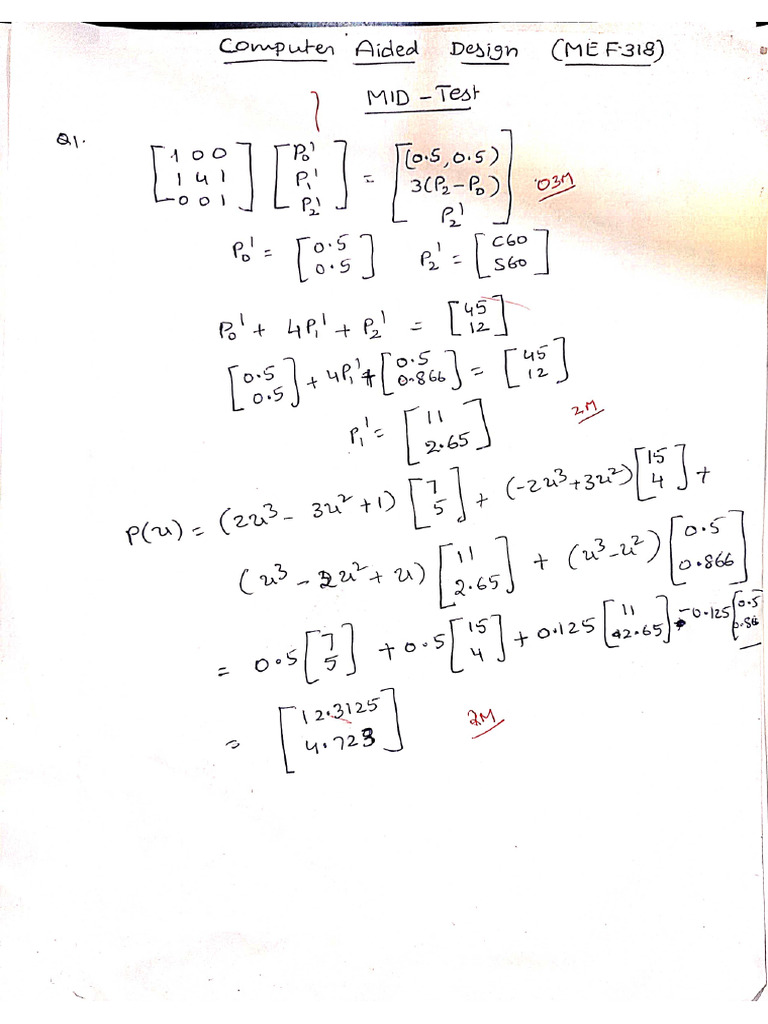 Computer Aided Design (ME F318)
MID-Test
Q1.
[1 0 0; 1 4 1; 0 0 1] [P₀'; P₁'; P₂'] = [(0.5, 0.5); 3(P₂-P₀); P₂'] 03M
P₀' = [0.5; 0.5] P₂' = [C60; S60]
P₀' + 4P₁' + P₂' = [45; 12]
[0.5; 0.5] + 4P₁' + [0.5; 0.866] = [45; 12]
P₁' = [11; 2.65] 2M
P(u) = (2u³ - 3u² + 1) [7; 5] + (-2u³ + 3u²) [15; 4] +
(u³ - 2u² + u) [11; 2.65] + (u³ - u²) [0.5; 0.866]
= 0.5 [7; 5] + 0.5 [15; 4] + 0.125 [11; 2.65] - 0.125 [0.5; 0.86]
= [12.3125; 4.723] 2M